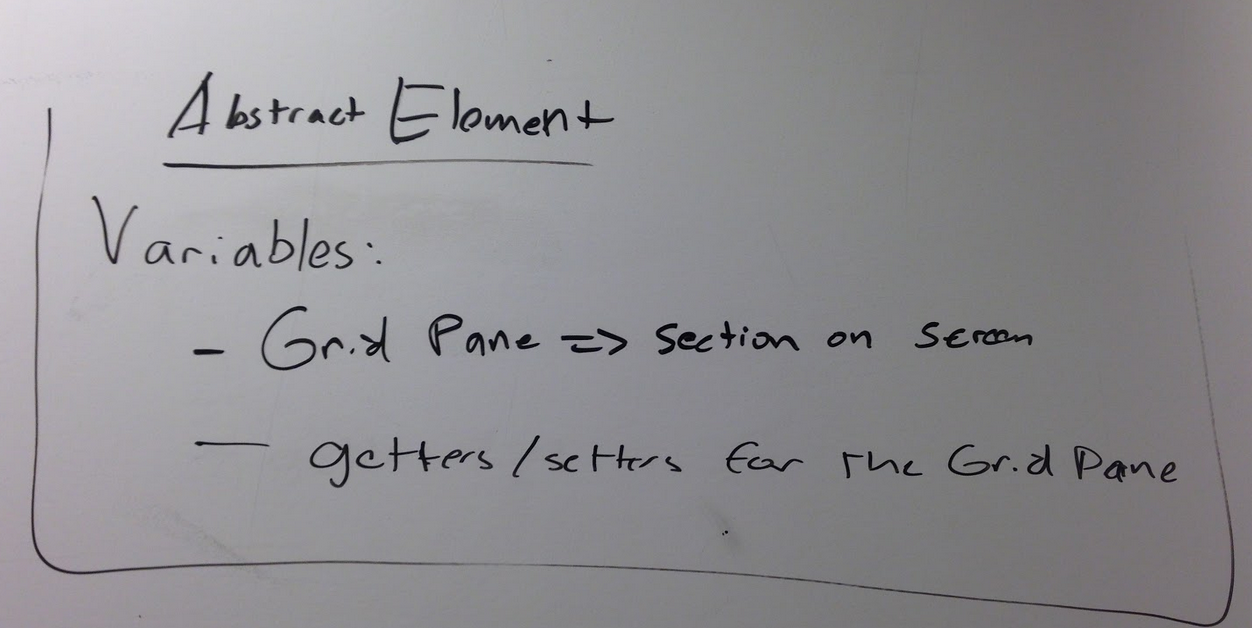 Abstract Element
Variables:
- Grid Pane => section on screen
- getters/setters for the Grid Pane